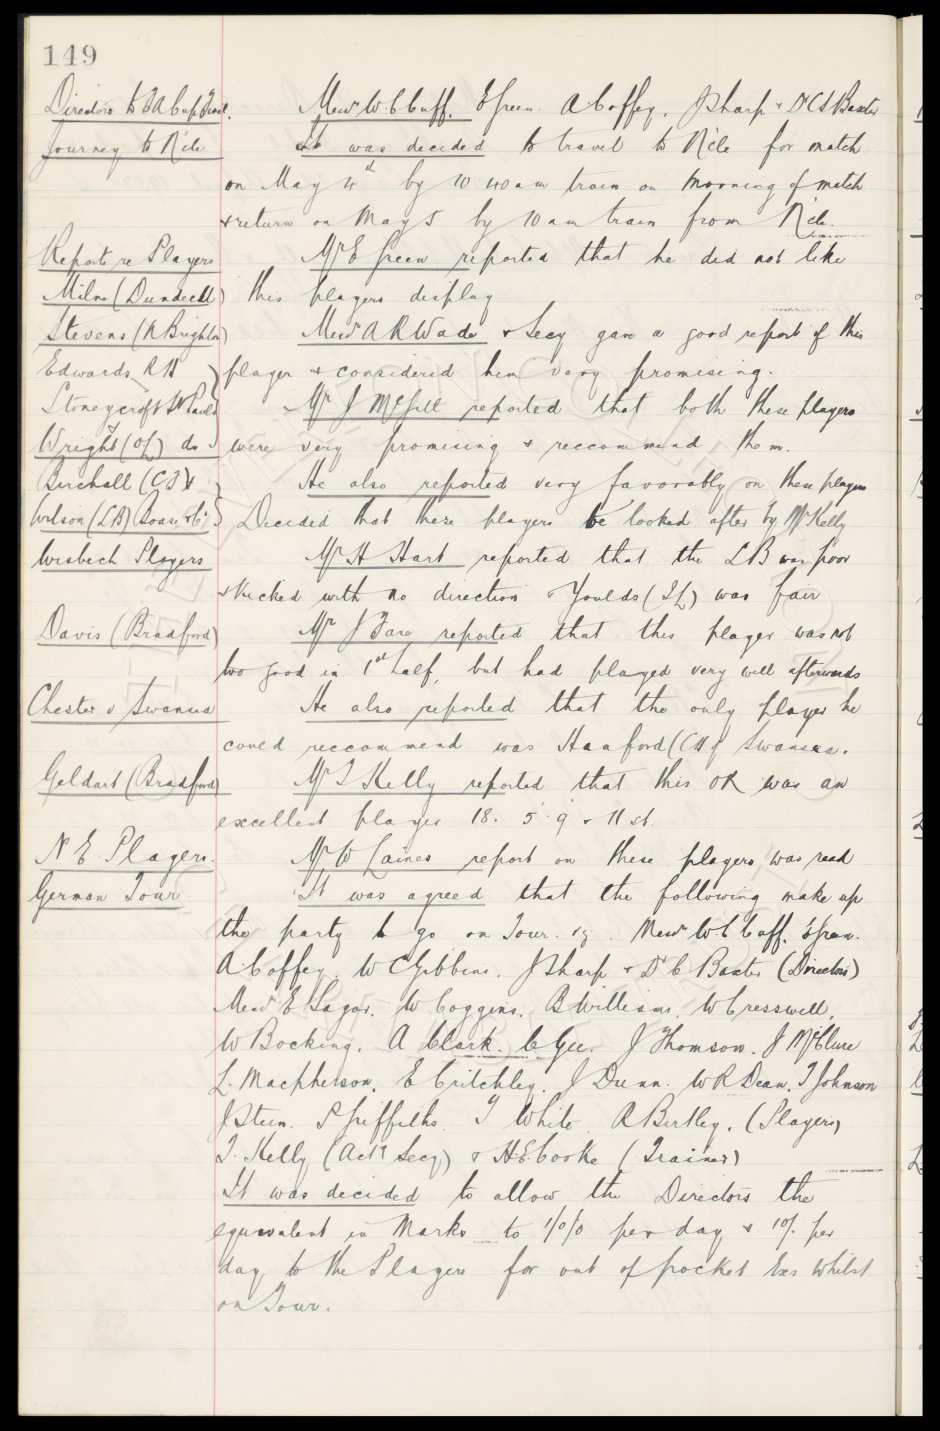 149
Directors to F A Cup Final. Messrs W C Cuff. E Green. A Coffey. J Sharp & Dr C S Baxter
Journey to N'cle It was decided to travel to N'cle for match
on May 4th by 10.40 am train on morning of match
& return on May 5 by 10 am train from N'cle.
Report re Players Mr E Green reported that he did not like
Milne (Dundee Utd) this players display
Stevens (N Brighton) Messrs A R Wade & Secy gave a good report of this
Edwards R H } player & considered him very promising.
Stoneycroft St Pauls Mr J McGill reported that both these players
Wright (OL) do } were very promising & reccommend them.
Birchall (CF) & He also reported very favorably on these players
Wilson (LB) Boase & Co } Decided that these players be looked after by Mr Kelly
Wisbech Players Mr H Hart reported that the LB was poor
& kicked with no direction & Youlds (IL) was fair
Davis (Bradford) Mr J Fare reported that this player was not
too good in 1st half, but had played very well afterwards
Chester v Swansea He also reported that the only player he
could reccommend was Hanford (CH) of Swansea.
Geldart (Bradford) Mr T Kelly reported that this OR was an
excellent player 18. 5' 9 & 11 st.
N E Players. Mr W Caines report on these players was read
German Tour It was agreed that the following make up
the party to go on Tour. vz. Messrs W. C Cuff. E Green.
A Coffey. W C Gibbins. J Sharp & Dr C Baxter (Directors)
Messrs E Sagar. W Coggins. B Williams. W Cresswell.
W Bocking. A Clark. C Gee. J Thomson. J McClure
L. Macpherson. E Critchley. J Dunn. W R Dean. T Johnson
J Stein. P Griffiths. T White. R Birtley. (Players)
T. Kelly (Actg Secy) & H.E. Cooke (Trainer)
It was decided to allow the Directors the
equivalent in Marks to 1/0/0 per day & 10/. per
day to the Players for out of pocket Exs whilst
on Tour.